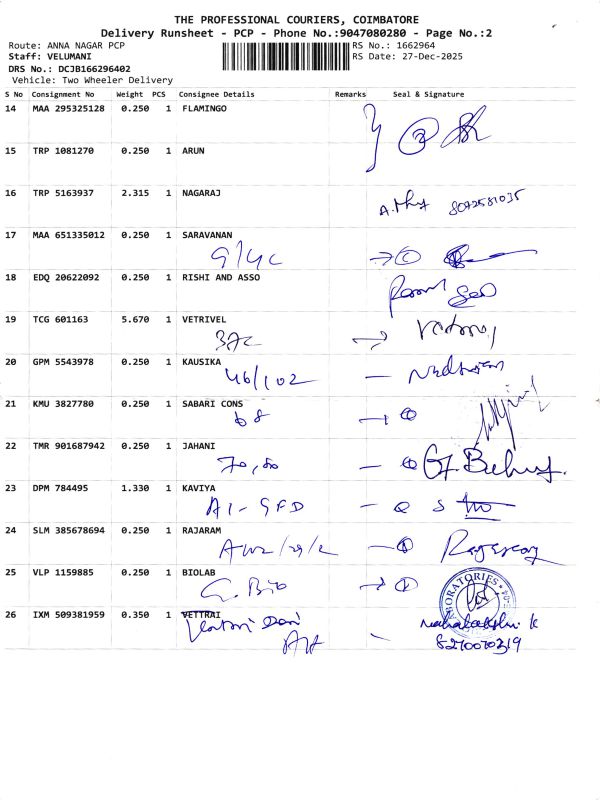 THE PROFESSIONAL COURIERS, COIMBATORE
Delivery Runsheet - PCP - Phone No.:9047080280 - Page No.:2
Route: ANNA NAGAR PCP RS No.: 1662964
Staff: VELUMANI RS Date: 27-Dec-2025
DRS No.: DCJB166296402
Vehicle: Two Wheeler Delivery
S No Consignment No Weight PCS Consignee Details Remarks Seal & Signature
14 MAA 295325128 0.250 1 FLAMINGO
15 TRP 1081270 0.250 1 ARUN
16 TRP 5163937 2.315 1 NAGARAJ
8072581035
17 MAA 651335012 0.250 1 SARAVANAN
18 EDQ 20622092 0.250 1 RISHI AND ASSO
19 TCG 601163 5.670 1 VETRIVEL
20 GPM 5543978 0.250 1 KAUSIKA
46/102
21 KMU 3827780 0.250 1 SABARI CONS
68
22 TMR 901687942 0.250 1 JAHANI
70,80
23 DPM 784495 1.330 1 KAVIYA
24 SLM 385678694 0.250 1 RAJARAM
25 VLP 1159885 0.250 1 BIOLAB
G. Bio
26 IXM 509381959 0.350 1 VETTRAI
Mahalakshmi K
8270070219